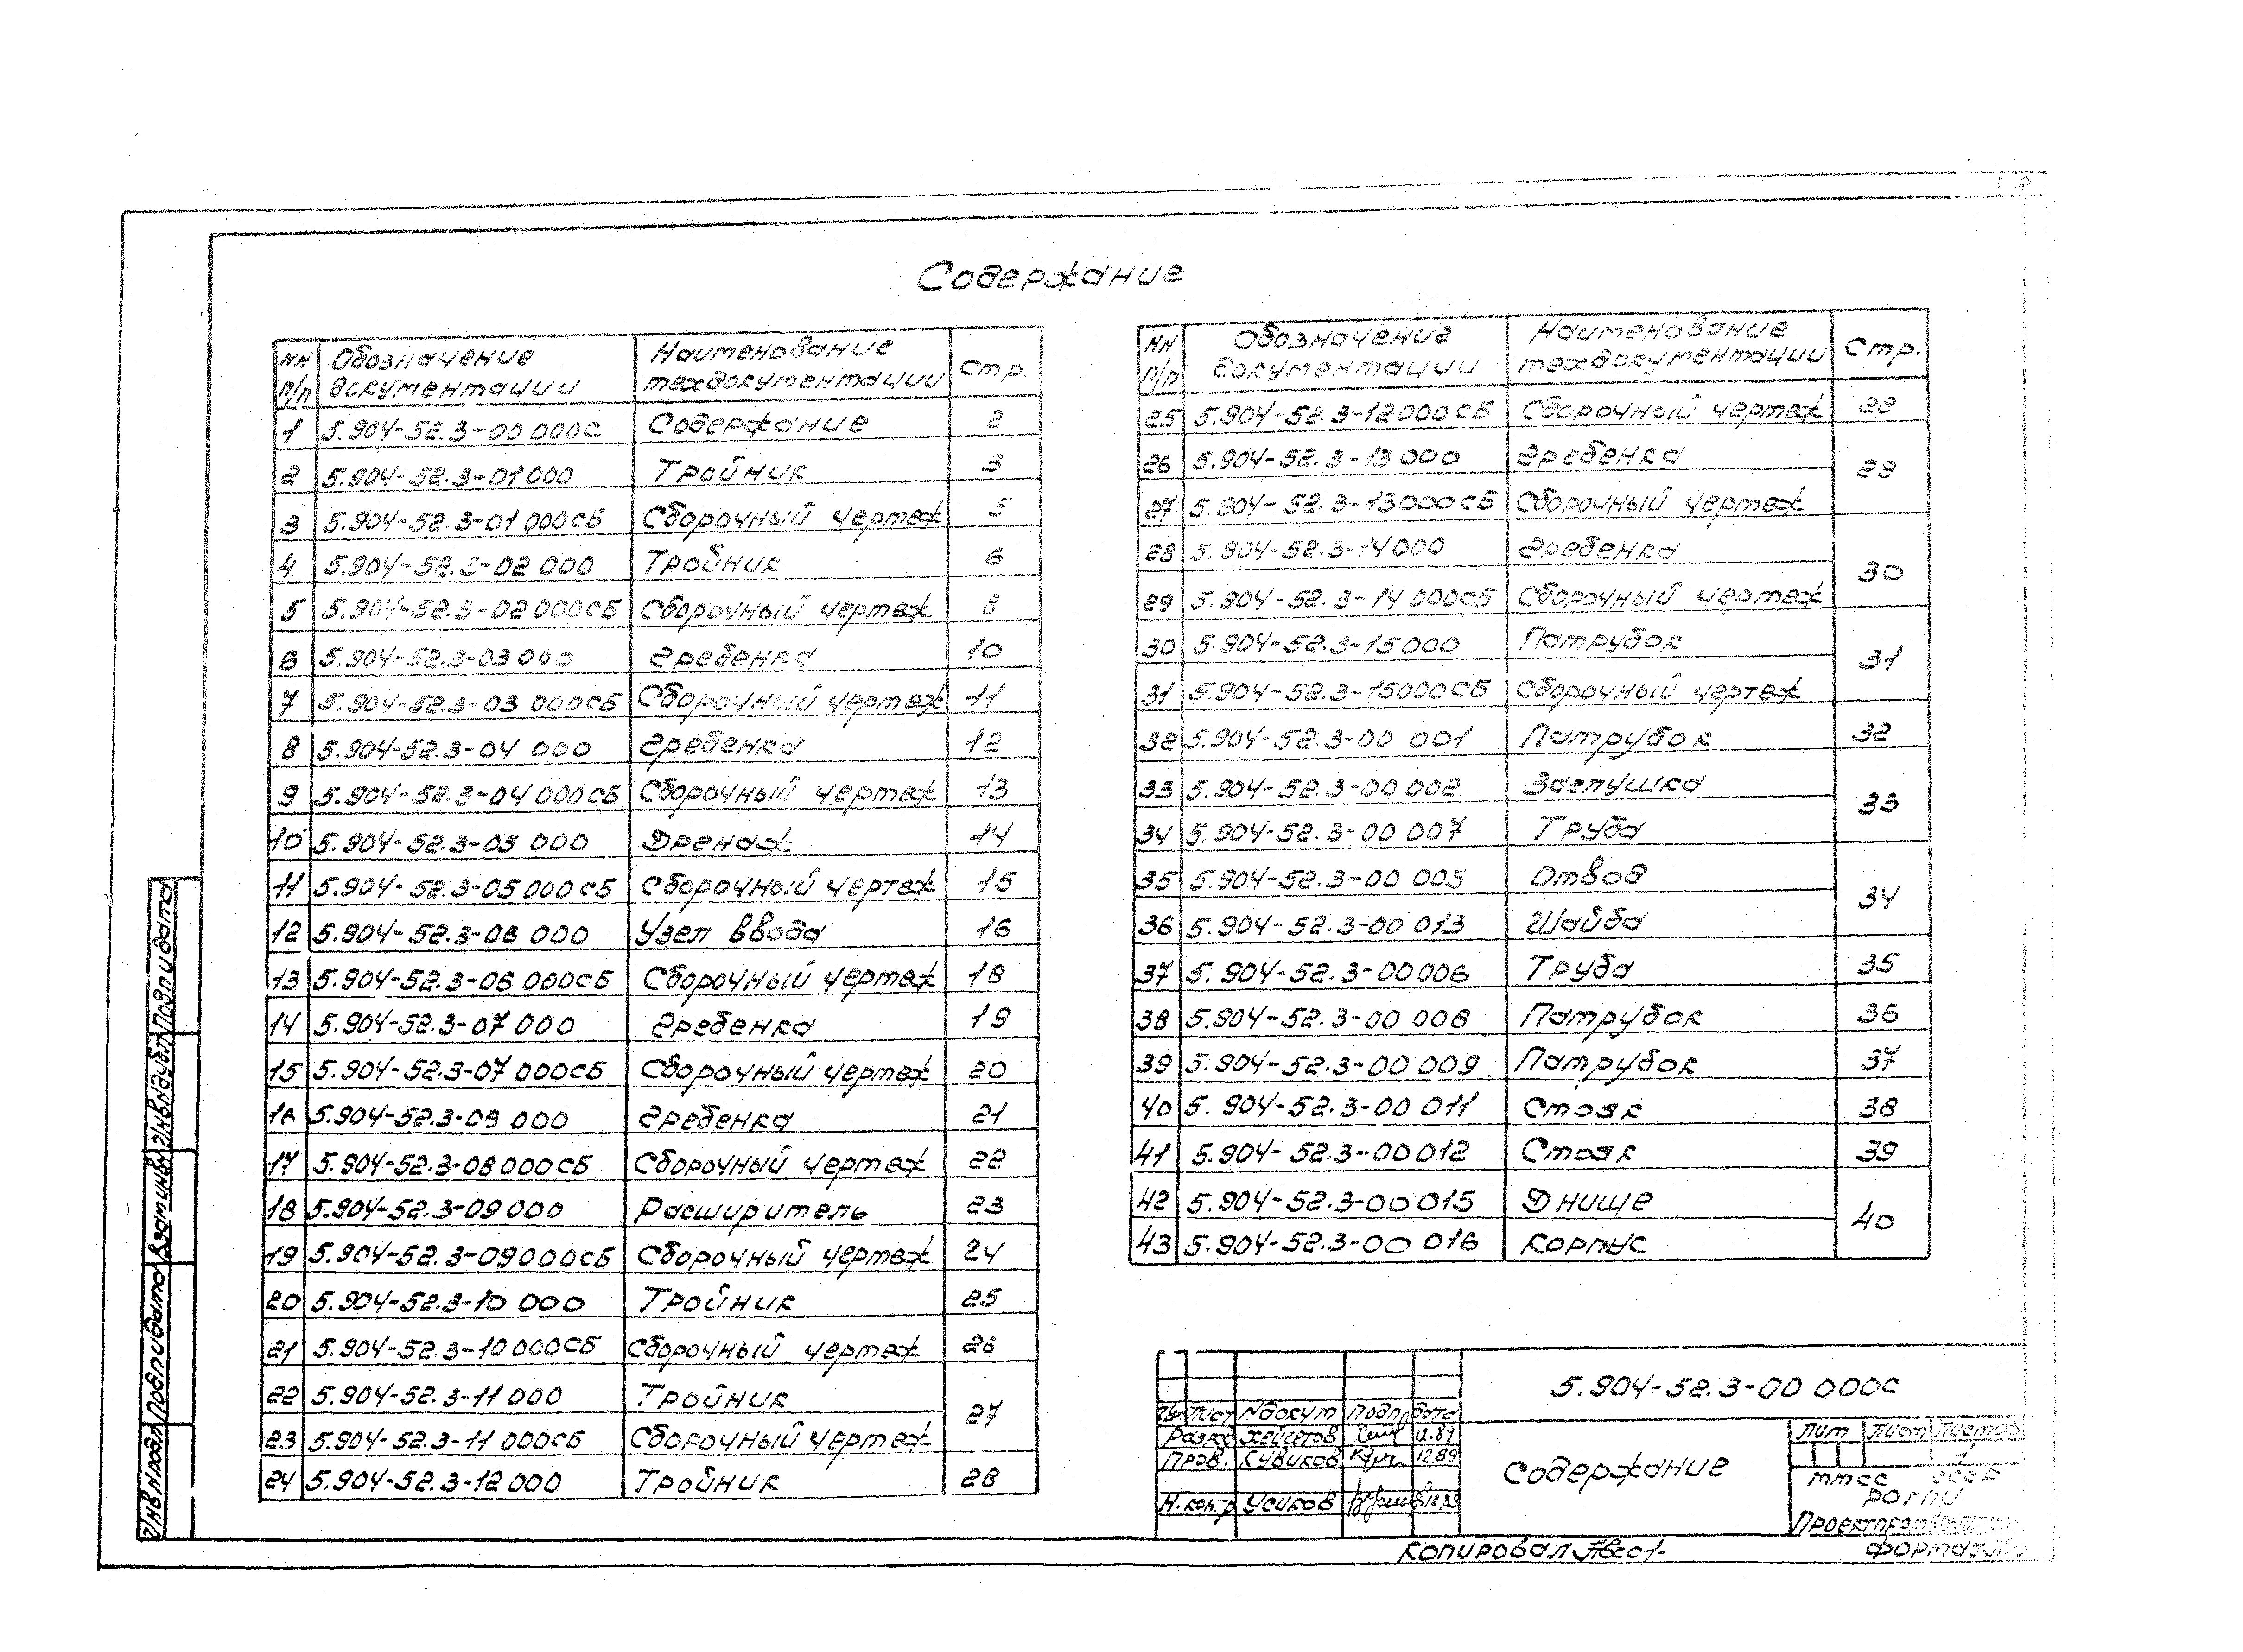 2
Содержание
NN п/п Обозначение документации Наименование техдокументации Стр.
1 5.904-52.3-00 000С Содержание 2
2 5.904-52.3-01 000 Тройник 3
3 5.904-52.3-01 000СБ Сборочный чертеж 5
4 5.904-52.3-02 000 Тройник 6
5 5.904-52.3-02 000СБ Сборочный чертеж 8
6 5.904-52.3-03 000 Гребенка 10
7 5.904-52.3-03 000СБ Сборочный чертеж 11
8 5.904-52.3-04 000 Гребенка 12
9 5.904-52.3-04 000СБ Сборочный чертеж 13
10 5.904-52.3-05 000 Дренаж 14
11 5.904-52.3-05 000СБ Сборочный чертеж 15
12 5.904-52.3-06 000 Узел ввода 16
13 5.904-52.3-06 000СБ Сборочный чертеж 18
14 5.904-52.3-07 000 Гребенка 19
15 5.904-52.3-07 000СБ Сборочный чертеж 20
16 5.904-52.3-08 000 Гребенка 21
17 5.904-52.3-08 000СБ Сборочный чертеж 22
18 5.904-52.3-09 000 Расширитель 23
19 5.904-52.3-09 000СБ Сборочный чертеж 24
20 5.904-52.3-10 000 Тройник 25
21 5.904-52.3-10 000СБ Сборочный чертеж 26
22 5.904-52.3-11 000 Тройник 27
23 5.904-52.3-11 000СБ Сборочный чертеж
24 5.904-52.3-12 000 Тройник 28
NN п/п Обозначение документации Наименование техдокументации Стр.
25 5.904-52.3-12 000СБ Сборочный чертеж 28
26 5.904-52.3-13 000 Гребенка 29
27 5.904-52.3-13 000СБ Сборочный чертеж
28 5.904-52.3-14 000 Гребенка 30
29 5.904-52.3-14 000СБ Сборочный чертеж
30 5.904-52.3-15 000 Патрубок 31
31 5.904-52.3-15 000СБ Сборочный чертеж
32 5.904-52.3-00 001 Патрубок 32
33 5.904-52.3-00 002 Заглушка 33
34 5.904-52.3-00 007 Труба
35 5.904-52.3-00 005 Отвод 34
36 5.904-52.3-00 013 Шайба
37 5.904-52.3-00 006 Труба 35
38 5.904-52.3-00 008 Патрубок 36
39 5.904-52.3-00 009 Патрубок 37
40 5.904-52.3-00 011 Стояк 38
41 5.904-52.3-00 012 Стояк 39
42 5.904-52.3-00 015 Днище 40
43 5.904-52.3-00 016 Корпус
5.904-52.3-00 000С
Лист N докум Подп. дата
12.89
Пров. Кувиков 12.89
Н. контр Усиков 12.89
Содержание
Лит Лист Листов
1
ММСС СССР
Копировал
Формат
Инв N подл Подп и дата Взам инв N Инв N дубл Подп и дата